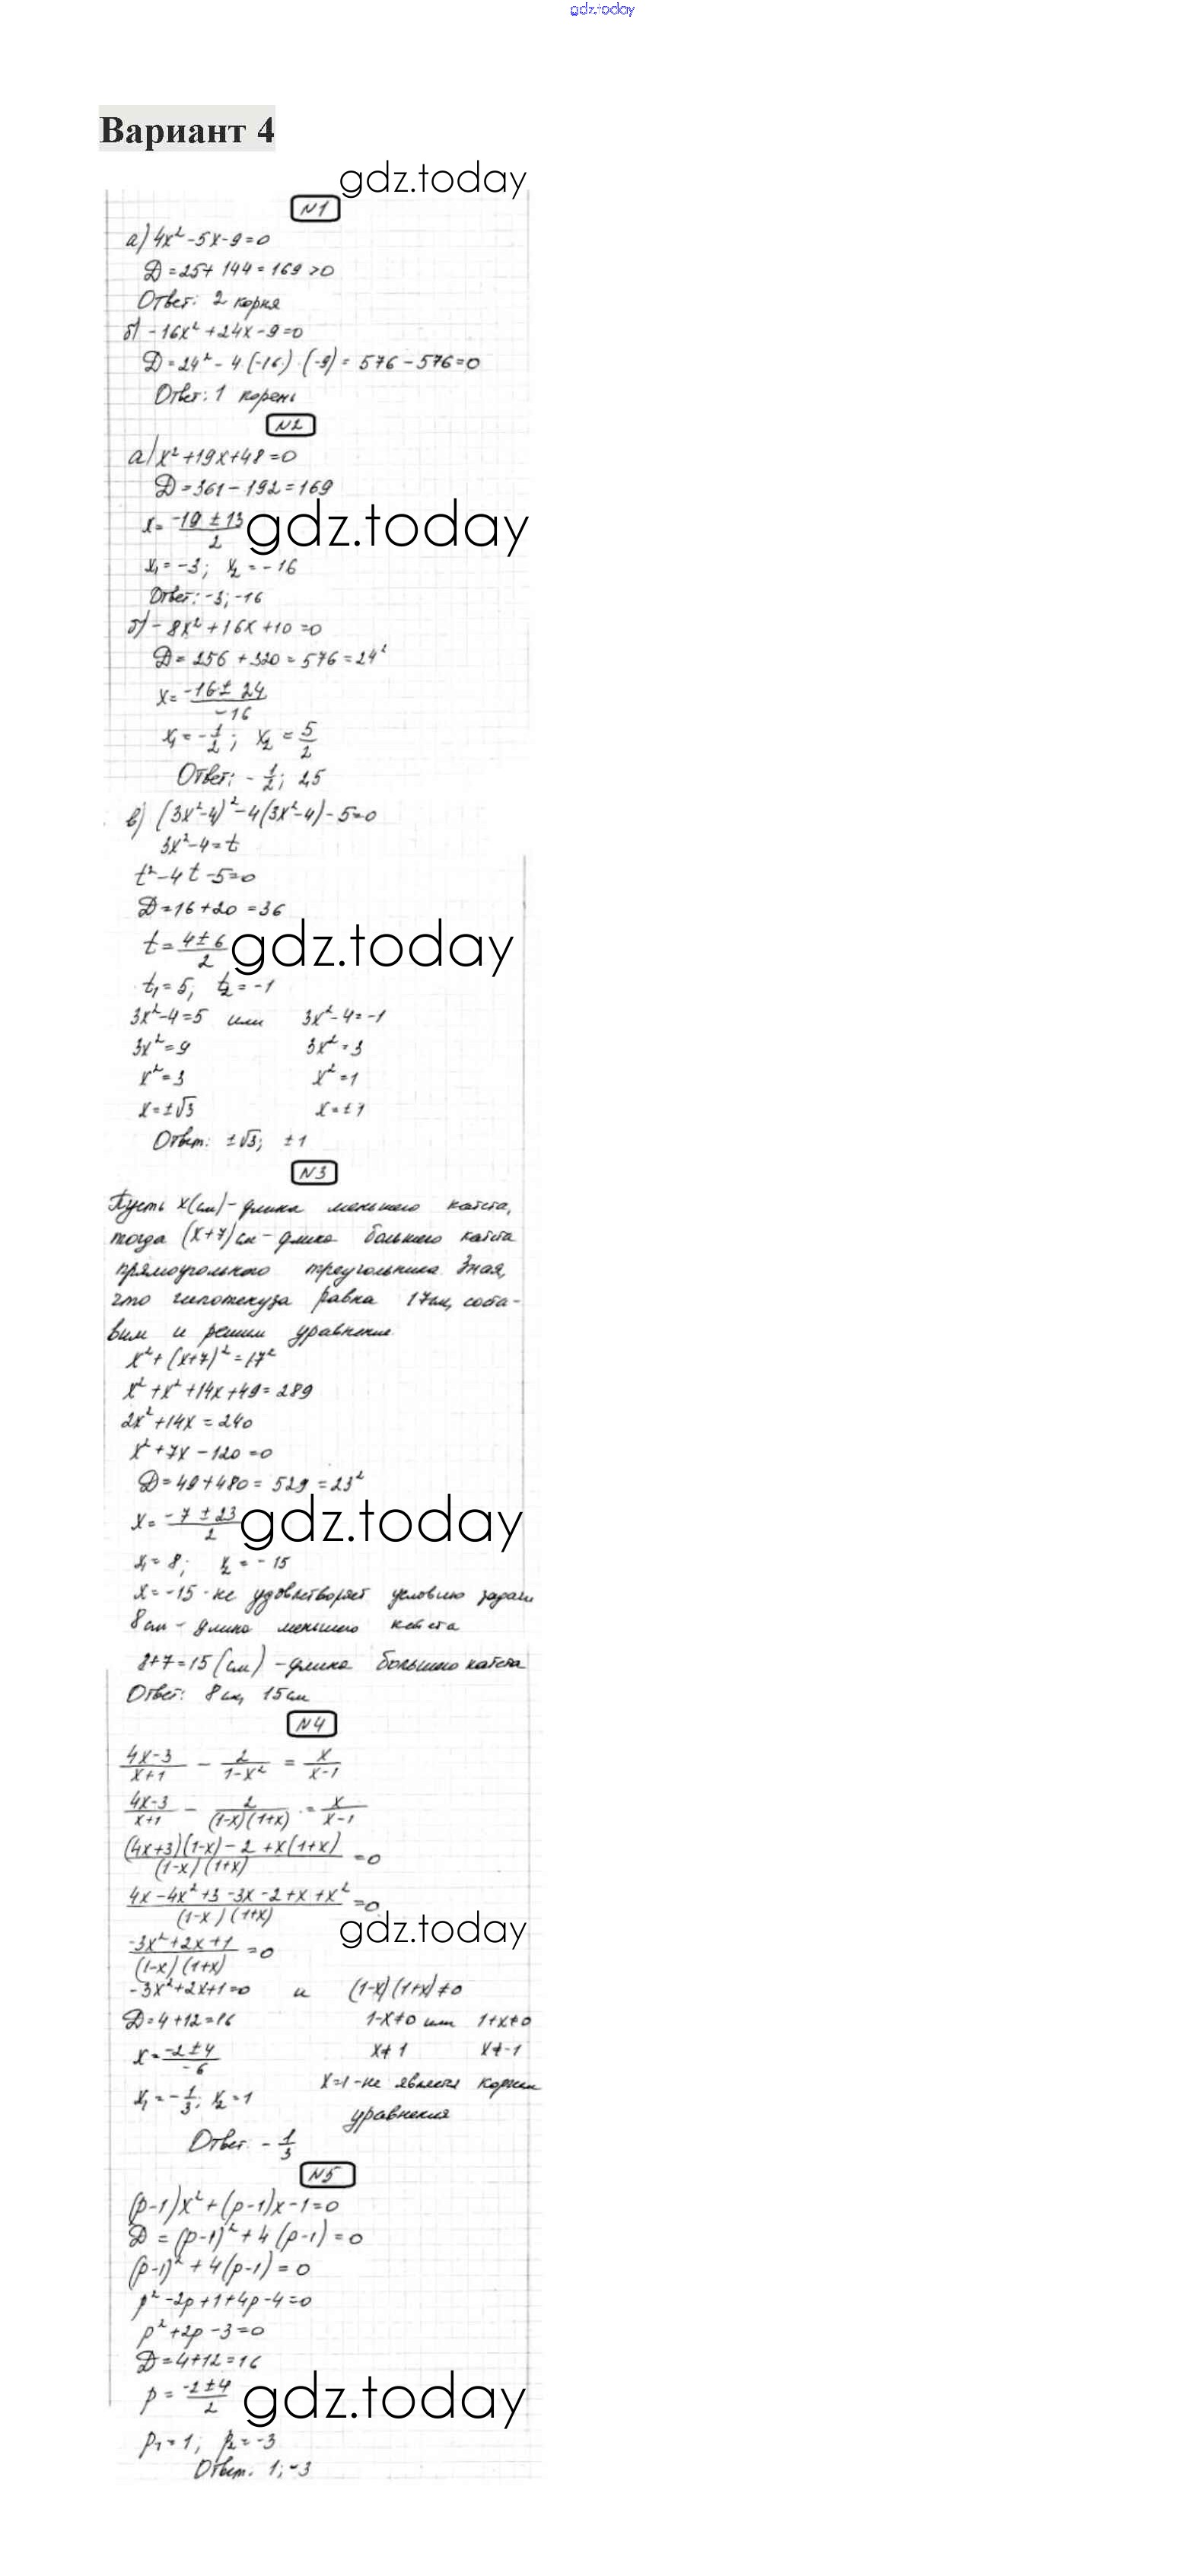 gdz.today
Вариант 4
gdz.today
N1
а) 4x² -5x-9=0
D=25+144=169>0
Ответ: 2 корня
б) -16x²+24x-9=0
D=24²-4·(-16)·(-9)=576-576=0
Ответ: 1 корень
N2
а) x²+19x+48=0
D=361-192=169
x= (-19 ± 13)/2 gdz.today
x₁=-3; x₂=-16
Ответ: -3; -16
б) -8x²+16x+10=0
D=256+320=576=24²
x= (-16 ± 24)/-16
x₁=-1/2; x₂=5/2
Ответ: -1/2; 2,5
в) (3x²-4)²-4(3x²-4)-5=0
3x²-4=t
t²-4t-5=0
D=16+20=36
t= (4±6)/2 gdz.today
t₁=5; t₂=-1
3x²-4=5 или 3x²-4=-1
3x²=9 3x²=3
x²=3 x²=1
x=±√3 x=±1
Ответ: ±√3; ±1
N3
Пусть x(см)-длина меньшего катета,
тогда (x+7)см-длина большего катета
прямоугольного треугольника. Зная,
что гипотенуза равна 17см, соста-
вим и решим уравнение
x²+(x+7)²=17²
x²+x²+14x+49=289
2x²+14x=240
x²+7x-120=0
D=49+480=529=23²
x= (-7 ± 23)/2 gdz.today
x₁=8; x₂=-15
x=-15-не удовлетворяет условию задачи
8см-длина меньшего катета
8+7=15(см)-длина большего катета
Ответ: 8см, 15см
N4
(4x-3)/(x+1) - 2/(1-x²) = x/(x-1)
(4x-3)/(x+1) - 2/((1-x)(1+x)) = x/(x-1)
((4x+3)(1-x)-2+x(1+x))/((1-x)(1+x)) =0
(4x-4x²+3-3x-2+x+x²)/((1-x)(1+x)) =0
gdz.today
(-3x²+2x+1)/((1-x)(1+x)) =0
-3x²+2x+1=0 и (1-x)(1+x)≠0
D=4+12=16 1-x≠0 или 1+x≠0
x= (-2±4)/-6 x≠1 x≠-1
x₁=-1/3; x₂=1 x=1-не является корнем
уравнения
Ответ: -1/3
N5
(p-1)x²+(p-1)x-1=0
D=(p-1)²+4(p-1)=0
(p-1)²+4(p-1)=0
p²-2p+1+4p-4=0
p²+2p-3=0
D=4+12=16
p= (-2±4)/2 gdz.today
p₁=1; p₂=-3
Ответ: 1; -3